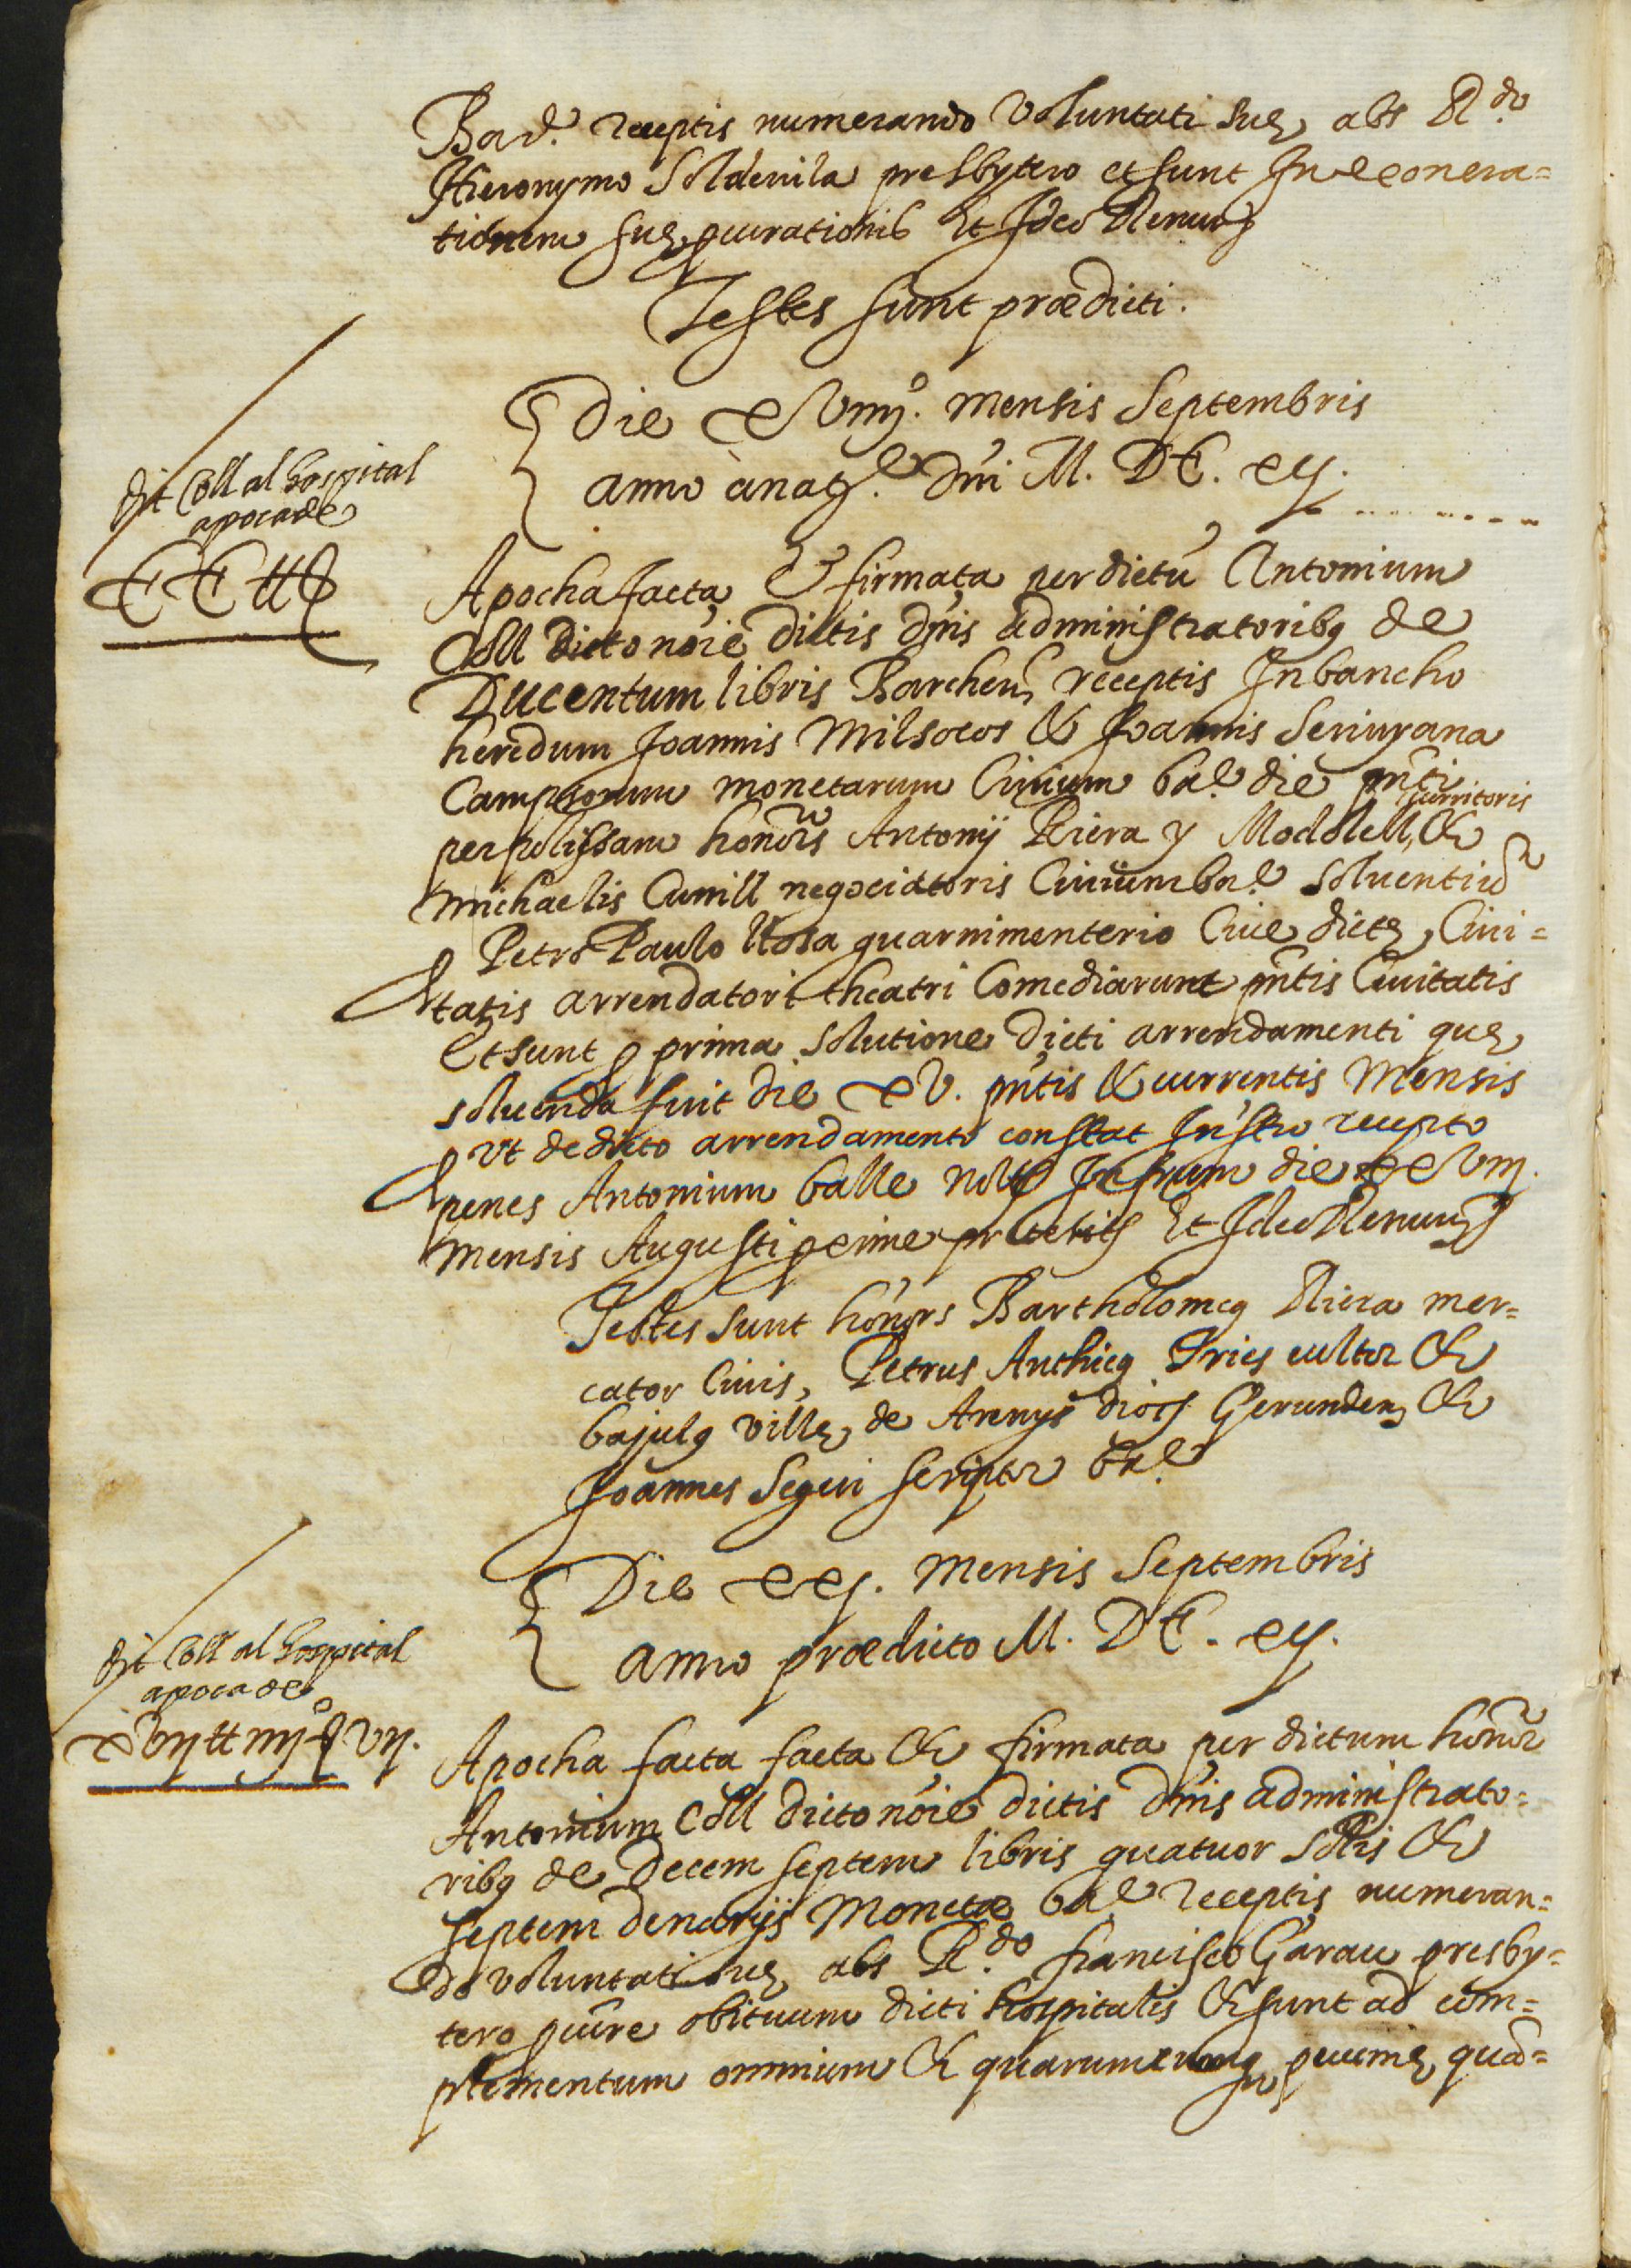 Bar.ᵉ receptis numerando voluntati suę abs R.ᵈᵒ
Hieronymo Soldevila presbytero et sunt In exonera=
tionem suę ꝓcurationis Et Ideo Renun§
Testes sunt prædicti.
Die xviiij.º mensis Septembris
anno à nat§.ᵉ Dñi M. DC. xij.
dit Coll al hospital
apoca de
CC ℔ §
Apocha facta & firmata per dictũ Antonium
Coll dicto nõie dictis dñis administratoribꝯ de
Ducentum libris Barchen§ receptis In bancho
heredum Joannis Milsocos & Joannis Seriurana
Campsorum monetarum Civium bar.ᵉ die pñti
per polissam honõrs Antonij Riera y Modolell, &
surritoris
Michaelis Cunill negociatoris Civium bar.ᵉ solventiũ
ꝓ Petro Paulo Llosa guarnimenterio Cive dictę Civi=
tatis arrendatori theatri Comediarum pñtis Civitatis
Et sunt ꝓ prima solutione dicti arrendamenti quę
solvenda fuit die xv. pñtis & currentis Mensis
ꝓut de dicto arrendamento constat Instro recepto
penes Antonium batlle not§ Infrum die xxviij.
mensis Augusti ꝓxime præteriti Et Ideo Renun§
Testes sunt honõrs Bartholomeꝯ Riera mer=
cator Civis, Petrus Anthicꝯ Pries cultor &
bajulꝯ villę de Arenys dioc§ Gerunden§ &
Joannes Segui scriptor bar.ᵉ
Die xxj. mensis Septembris
anno prædicto M. DC. xij.
dit Coll al hospital
apoca de
xvij ℔ iiij § vij.
Apocha facta facta & firmata per dictum honor
Antonium Coll dicto nõie dictis dñis administrato=
ribꝯ de Decem septem libris quatuor sólis &
septem denarijs Monetæ bar.ᵉ receptis numeran=
do voluntati suę abs R.ᵈᵒ francisco Garau presby=
tero ꝓcũre obituum dicti hospitalis & sunt ad com=
plementum omnium & quarumcumqꝫ pecunię quã=